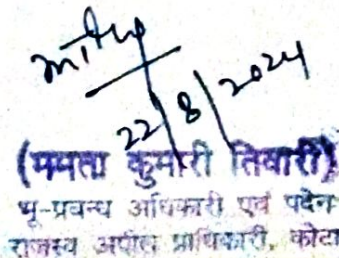 22/8/2024
(ममता कुमारी तिवारी)
भू-प्रबन्ध अधिकारी एवं पदेन
राजस्व अपील प्राधिकारी, कोटा